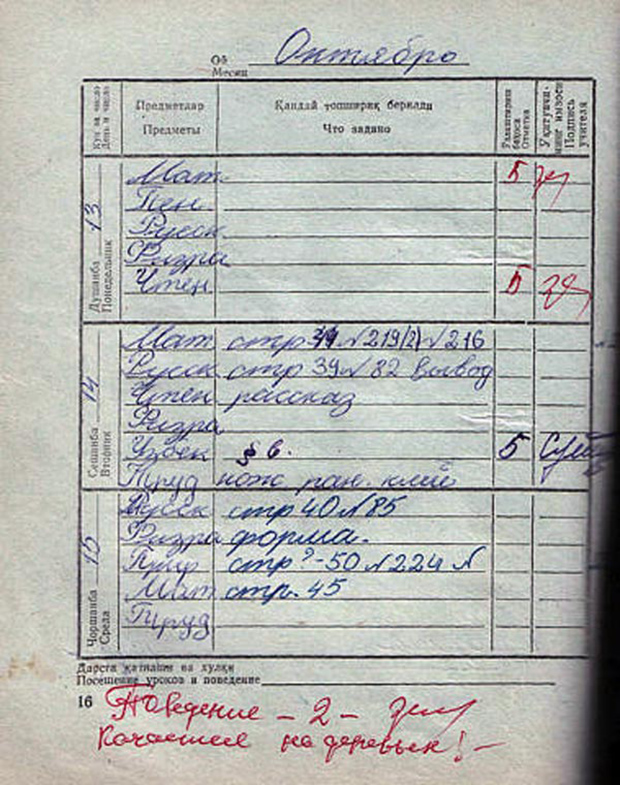 Ой Октябрь
Месяц
Кун ва число
День и число
Предметлар
Предметы
Қандай топшириқ берилди
Что задано
баҳоси
Отметка
Ўқитувчи-
нинг имзоси
Подпись
учителя
Душанба
Понедельник
13
Мат 5
Пен
Русск
Физра
Чтен 5
Сешанба
Вторник
14
Мат стр 44 №219(2) №216
Русск стр 39 №82 вывод
Чтен рассказ
Физра
Узбек § 6. 5
Труд нож ран. клей
Чоршанба
Среда
15
Русск стр 40 №85
Физра форма.
Прир стр ?-50 №224 №
Мат стр. 45
Труд
Дарсга қатнаши ва хулқи
Посещение уроков и поведение
16
Поведение - 2 -
Качаешься на деревьях! -